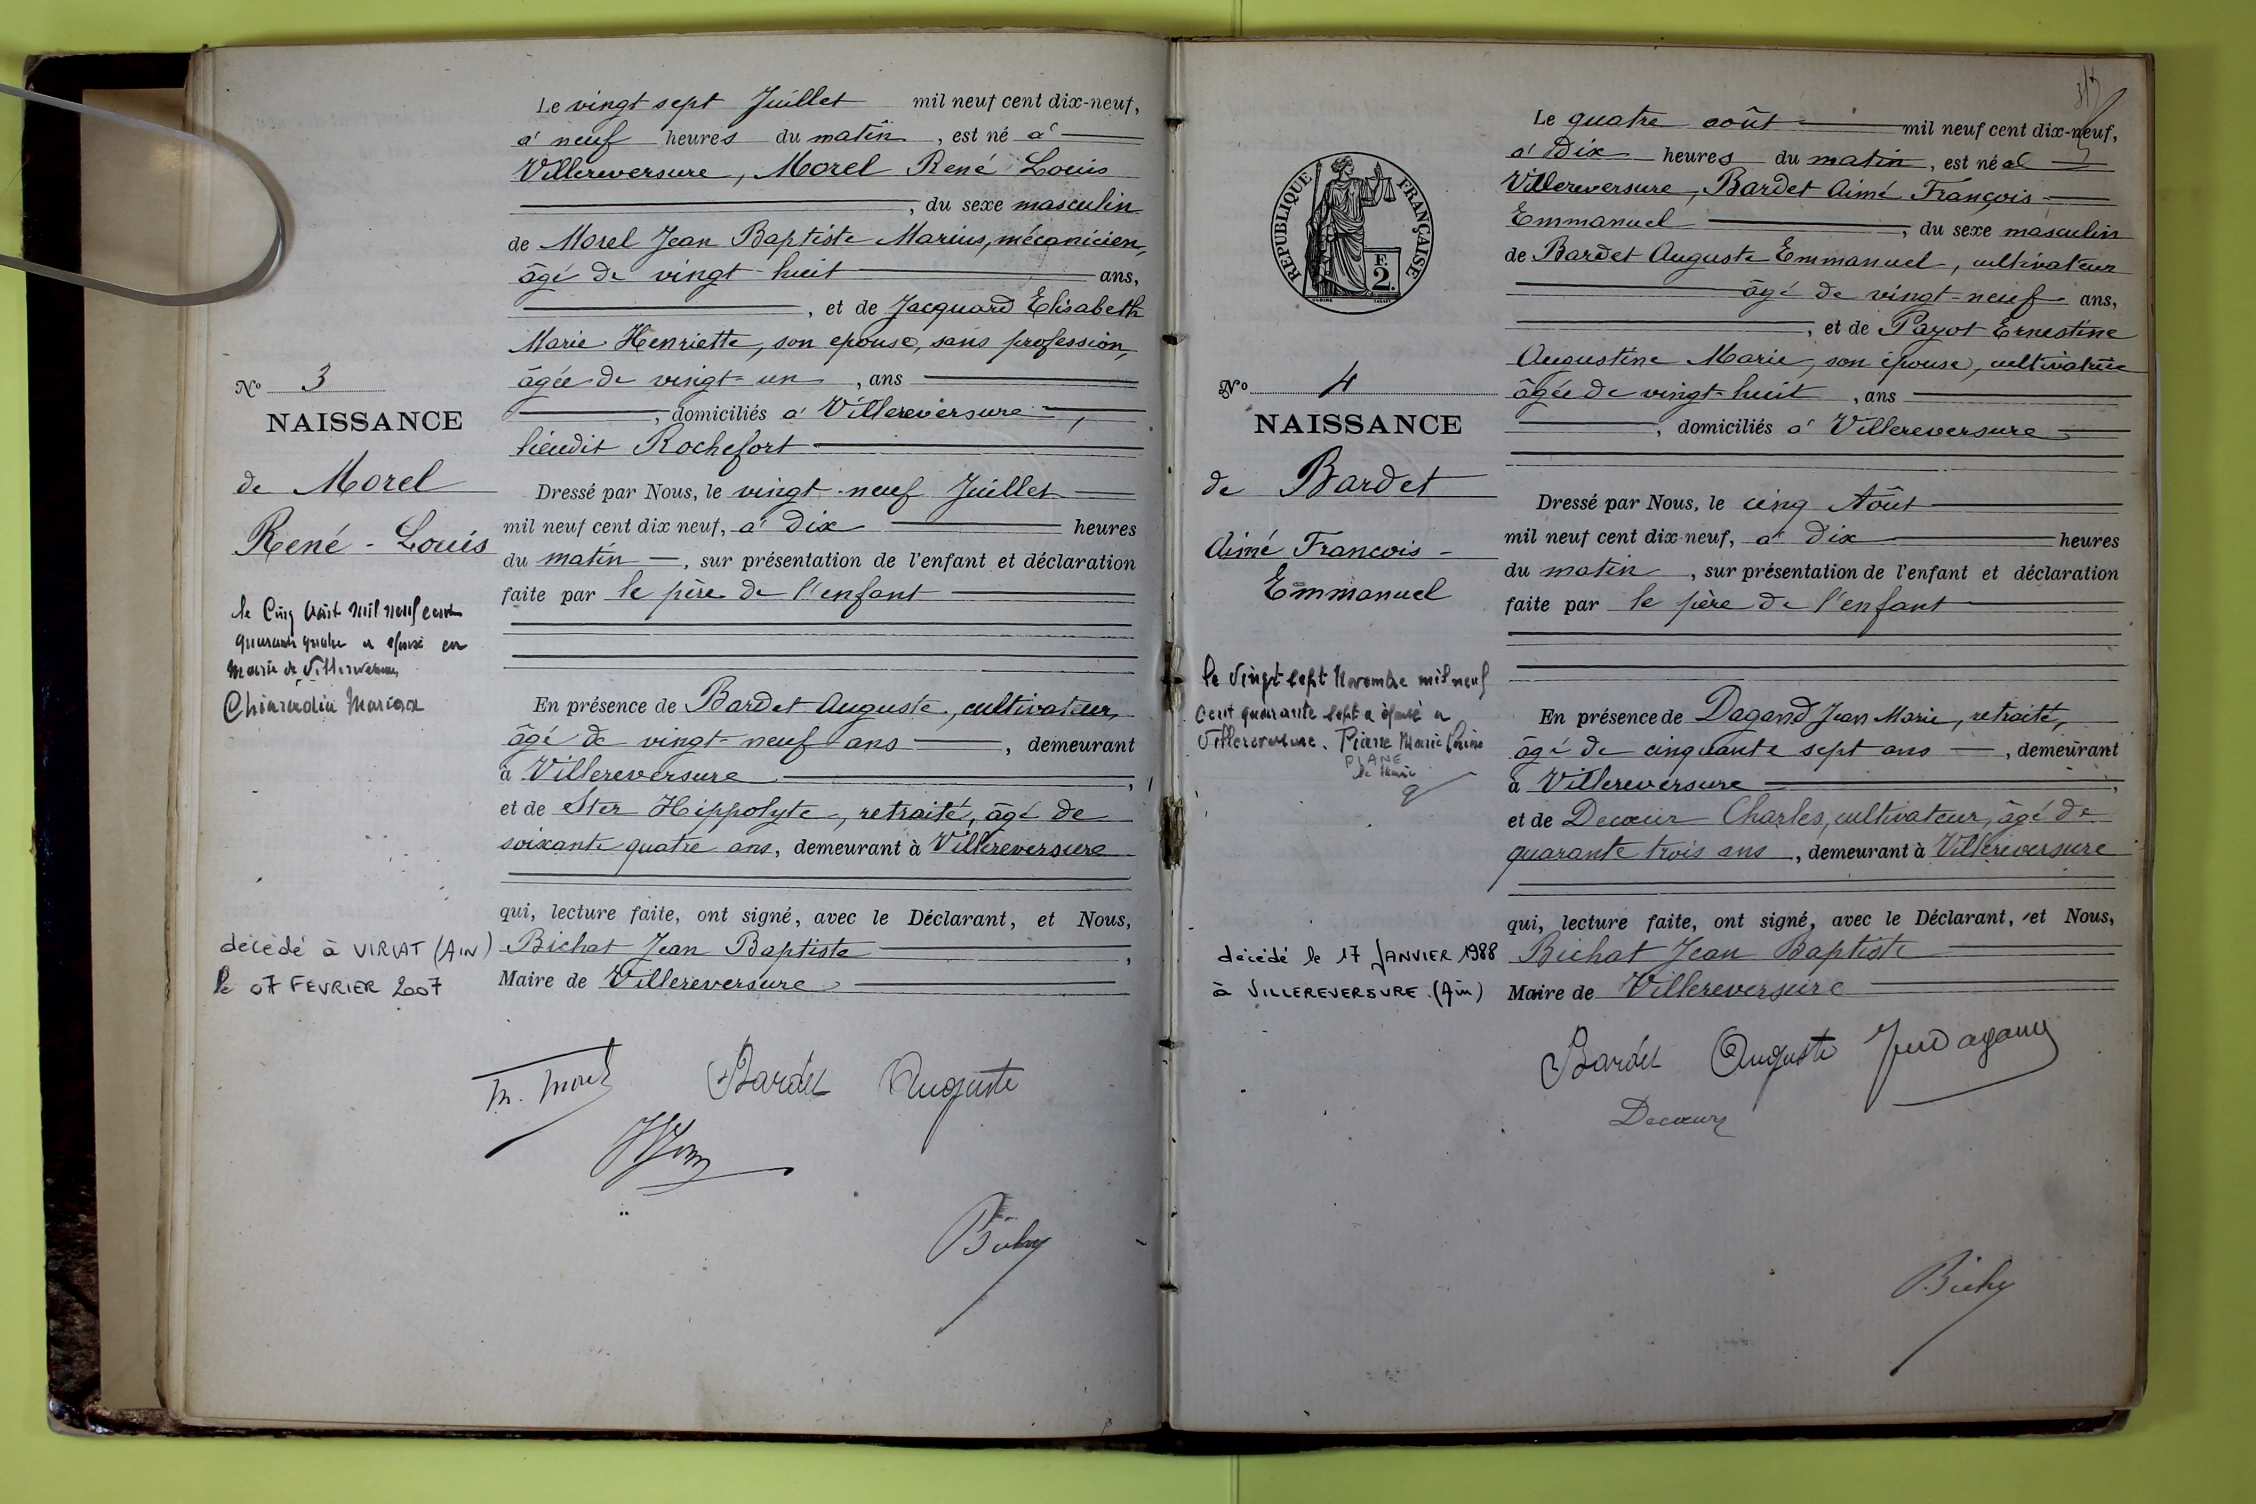 Le vingt sept Juillet mil neuf cent dix-neuf,
à neuf heures du matin, est né à
Villereversure, Morel René Louis
, du sexe masculin
de Morel Jean Baptiste Marius, mécanicien,
âgé de vingt-huit ans,
, et de Jacquard Elisabeth
Marie Henriette, son epouse, sans profession,
âgée de vingt-un, ans
, domiciliés à Villereversure,
lieudit Rochefort
Dressé par Nous, le vingt-neuf Juillet
mil neuf cent dix neuf, à dix heures
du matin, sur présentation de l'enfant et déclaration
faite par le père de l'enfant
En présence de Bardet Auguste, cultivateur,
âgé de vingt-neuf ans, demeurant
à Villereversure,
et de Ster Hippolyte, retraité, âgé de
soixante quatre ans, demeurant à Villereversure
qui, lecture faite, ont signé, avec le Déclarant, et Nous,
Bichat Jean Baptiste,
Maire de Villereversure
M. Morel
Bardet Auguste
No 3
NAISSANCE
de Morel
René-Louis
le Cinq Août mil neuf cent
quarante quatre a épousé en
Mairie de Villereversure
décédé à VIRIAT (AIN)
le 07 FEVRIER 2007
Le quatre août mil neuf cent dix-neuf,
à dix heures du matin, est né à
Villereversure, Bardet Aimé François
Emmanuel, du sexe masculin
de Bardet Auguste Emmanuel, cultivateur
âgé de vingt-neuf ans,
, et de Payot Ernestine
Augustine Marie, son épouse, cultivatrice
âgée de vingt-huit, ans
, domiciliés à Villereversure
Dressé par Nous, le cinq Août
mil neuf cent dix-neuf, à dix heures
du matin, sur présentation de l'enfant et déclaration
faite par le père de l'enfant
En présence de Dagand Jean Marie, retraité,
âgé de cinquante sept ans, demeurant
à Villereversure,
et de Decœur Charles, cultivateur, âgé de
quarante trois ans, demeurant à Villereversure
qui, lecture faite, ont signé, avec le Déclarant, et Nous,
Bichat Jean Baptiste
Maire de Villereversure
Bardet Auguste
Decœur
RÉPUBLIQUE FRANÇAISE
F
2.
No 4
NAISSANCE
de Bardet
Aimé François-
Emmanuel
le Vingt sept Novembre mil neuf
cent quarante sept a épousé à
Villereversure. Pierre Marie
PLANE
le Maire
décédé le 17 JANVIER 1988
à VILLEREVERSURE (Ain)